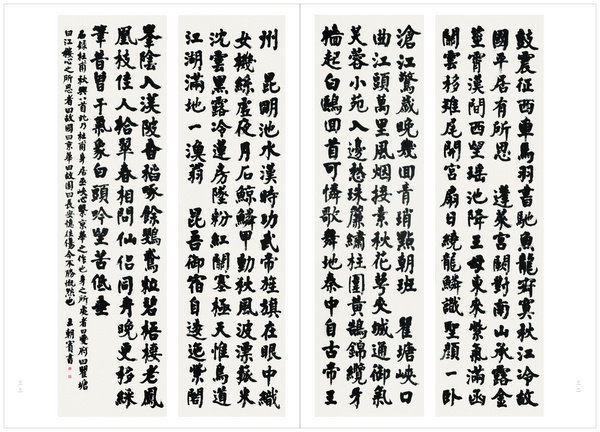 鼓震征西車馬羽書馳魚龍寂寞秋江冷故
國平居有所思　蓬萊宮闕對南山承露金
莖霄漢間西望瑤池降王母東來紫氣滿函
關雲移雉尾開宮扇日繞龍鱗識聖顏一卧
滄江驚歲晚幾回青瑣點朝班　瞿塘峽口
曲江頭萬里風烟接素秋花萼夾城通御氣
芙蓉小苑入邊愁珠簾繡柱圍黃鵠錦纜牙
檣起白鷗回首可憐歌舞地秦中自古帝王
州　昆明池水漢時功武帝旌旗在眼中織
女機絲虛夜月石鯨鱗甲動秋風波漂菰米
沈雲黑露冷蓮房墜粉紅關塞極天惟鳥道
江湖滿地一漁翁　昆吾御宿自逶迤紫閣
峯陰入渼陂香稻啄餘鸚鵡粒碧梧棲老鳳
凰枝佳人拾翠春相問仙侣同舟晚更移綵
筆昔曾干氣象白頭吟望苦低垂
右錄杜甫秋興八首此乃杜甫身居巫峽心繫京華之作也身之所處者曰夔府曰瞿塘
曰江樓心之所思者曰故國曰京華曰故園曰長安憶往傷今不勝慨然也　王朝賓書